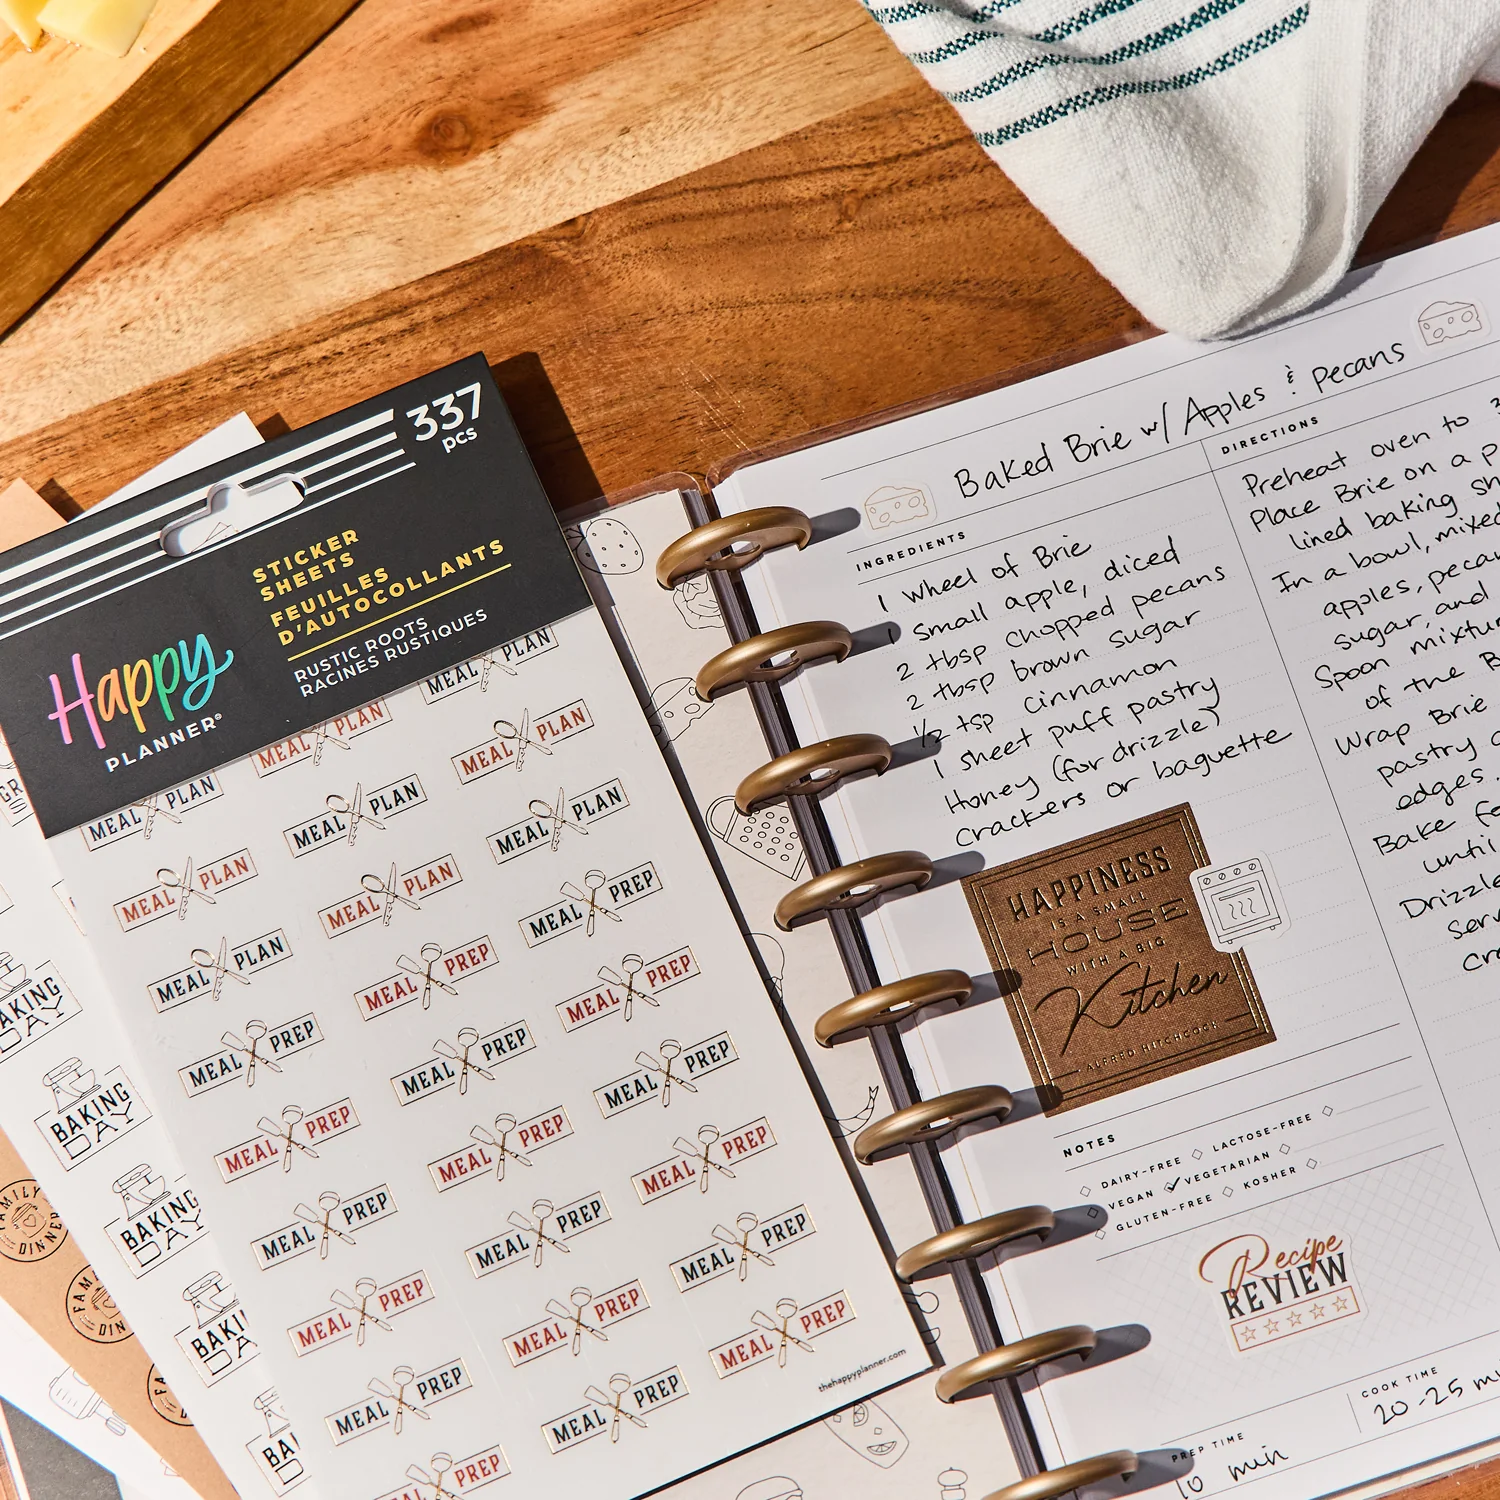 337
pcs
STICKER
SHEETS
FEUILLES
D'AUTOCOLLANTS
RUSTIC ROOTS
RACINES RUSTIQUES
Happy
PLANNER®
MEAL PLAN
MEAL PLAN
MEAL PLAN
MEAL PLAN
MEAL PLAN
MEAL PLAN
MEAL PLAN
MEAL PLAN
MEAL PLAN
MEAL PREP
MEAL PLAN
MEAL PREP
MEAL PREP
MEAL PREP
MEAL PREP
MEAL PREP
MEAL PREP
MEAL PREP
MEAL PREP
MEAL PREP
MEAL PREP
MEAL PREP
MEAL PREP
MEAL PREP
MEAL PREP
MEAL PREP
MEAL PREP
PREP
thehappyplanner.com
BAKING
DAY
BAKING
DAY
BAKING
DAY
FAMILY
DINNER
Baked Brie w/ Apples & pecans
INGREDIENTS
1 wheel of Brie
1 small apple, diced
2 tbsp chopped pecans
2 tbsp brown sugar
1/2 tsp cinnamon
1 sheet puff pastry
Honey (for drizzle)
Crackers or baguette
DIRECTIONS
Preheat oven to
Place Brie on a
lined baking
In a bowl, mixed
apples,
sugar, and
Spoon
of the
Wrap Brie
pastry
edges.
Bake
until
Drizzle
HAPPINESS
IS A SMALL
HOUSE
WITH A BIG
Kitchen
ALFRED HITCHCOCK
NOTES
DAIRY-FREE LACTOSE-FREE
VEGAN ✓ VEGETARIAN
GLUTEN-FREE KOSHER
Recipe
REVIEW
PREP TIME
10 min
COOK TIME
20-25